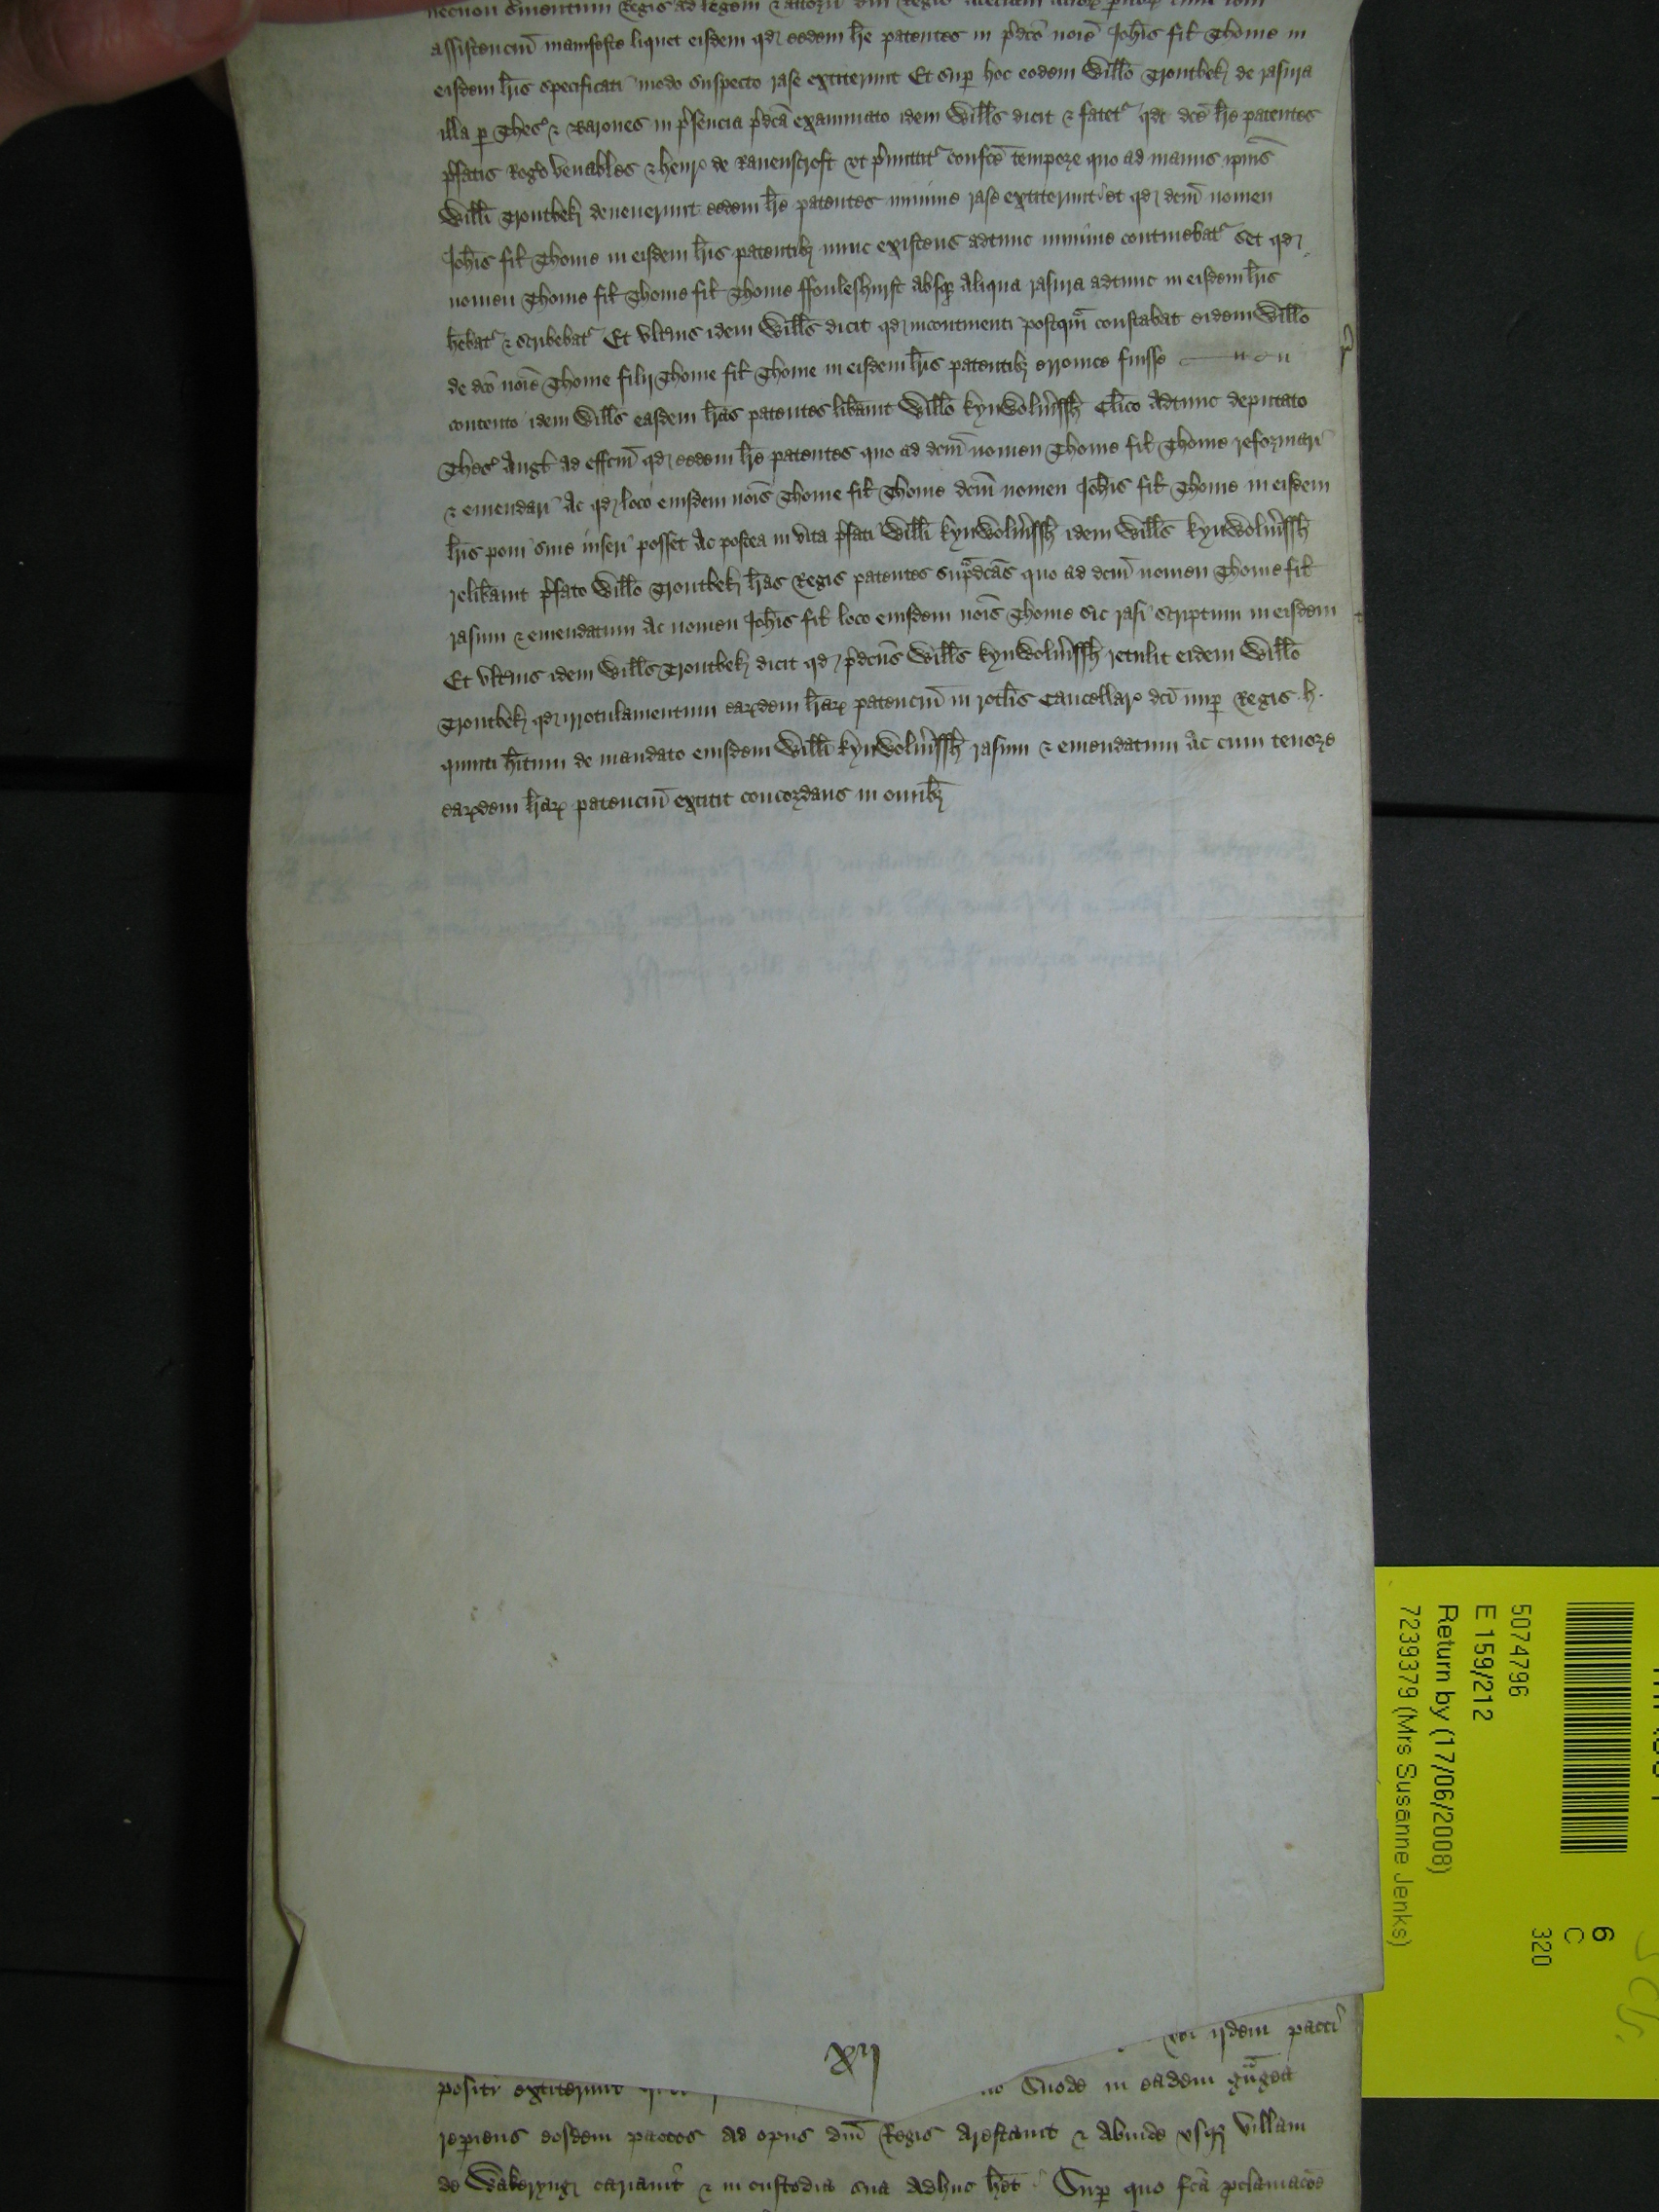 necnon s̃vientum Regis ad legem & attorñ dñi Regis
assistenciũ manifeste liquet eisdem qd eedem lr̃e patentes in p̃dc̃o noĩe Joh̃is fil Thome in
eisdem lr̃is specificati modo suspecto rase extiterunt Et sup̱ hoc eodem Will̃o Troutbek de rasura
illa p̱ Thes̃ & Barones in p̃sencia p̃dc̃a examinato idem Will̃s dicit & fatet̃ qd dc̃e lr̃e patentes
p̃fatis Rogo Venables & Henr̃ de Ravenscroft vt p̃mittit̃ confc̃e tempore quo ad manus ip̃ius
Will̃i Troutbek devenerunt eedem lr̃e patentes minime rase extiterunt et qd dc̃m nomen
Joh̃is fil Thome in eisdem lr̃is patentib3 nunc existens adtunc minime continebat̃ Set qd
nomen Thome fil Thome fil Thome ffouleshurst absq3 aliqua rasura adtunc in eisdem lr̃is
h̃ebat̃ & scribebat̃ Et vlt̃ius idem Will̃s dicit qd incontinenti postqm̃ constabat eidem Will̃o
de dc̃o noĩe Thome filij Thome fil Thome in eisdem lr̃is patentib3 erronice fuisse
contento idem Will̃s easdem lr̃as patentes lib̃avit Will̃o Kynwolm̃ssh Cl̃ico adtunc deputato
Thes̃ Angl̃ ad effc̃m qd eedem lr̃e patentes quo ad dc̃m nomen Thome fil Thome reformari
& emendari Ac qd loco eiusdem noĩs Thome fil Thome dc̃m nomen Joh̃is fil Thome in eisdem
lr̃is poni sive inseri posset Ac postea in vita p̃fati Will̃i Kynwolm̃ssh idem Will̃s Kynwolm̃ssh
relib̃avit p̃fato Will̃o Troutbek lr̃as Regis patentes sup̃dc̃as quo ad dc̃m nomen Thome fil
rasum & emendatum Ac nomen Joh̃is fil loco eiusdem noĩs Thome sic rasi scriptum in eisdem
Et vlt̃ius idem Will̃s Troutbek dicit qd p̃dc̃us Will̃s Kynwolm̃ssh retulit eidem Will̃o
Troutbek qd irrotulamentum eaꝝdem lr̃aꝝ patenciũ in rotl̃is Cancellar̃ dc̃i nup̱ Regis H
quinti h̃itum de mandato eiusdem Will̃i Kynwolm̃ssh rasum & emendatum Ac cum tenore
eaꝝdem lr̃aꝝ patenciũ extitit concordans in omib3
xij
ijdem pacci
positi extiterunt Snode in eadem
rep̱iens eosdem paccos ad opus dñi Regis arestavit & abinde vsq3 villam
de Wakeryng cariavit & in custodia sua adhuc h̃et Sup̱ quo fc̃a p̱clamac̃oe
5074796
E 159/212
Return by (17/06/2008)
7239379 (Mrs Susanne Jenks)
6
C
320